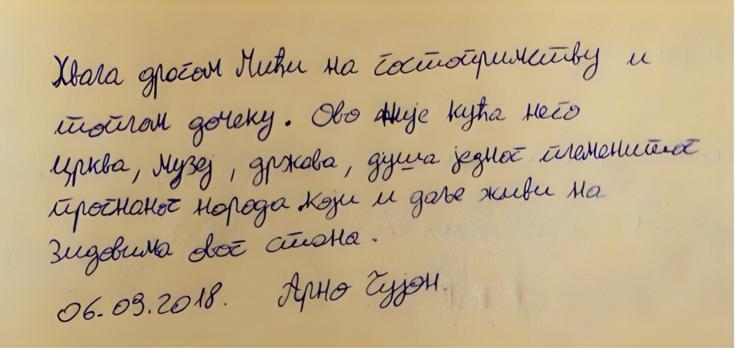 Хвала драгом Мићи на гостопримству и
топлом дочеку. Ово није кућа него
црква, музеј, држава, душа једног племенитог
прогнаног народа који и даље живи на
зидовима овог стана.
06.09.2018. Арно Гујон.